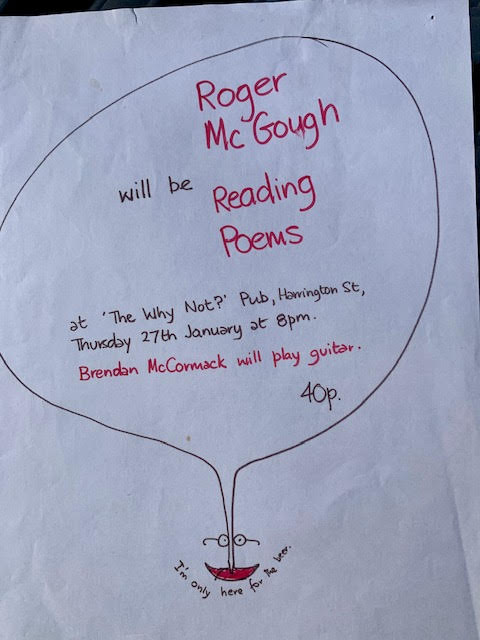 Roger
McGough
will be Reading
Poems
at 'The Why Not?' Pub, Harrington St,
Thursday 27th January at 8pm.
Brendan McCormack will play guitar.
40p.
I'm only here for the beer.